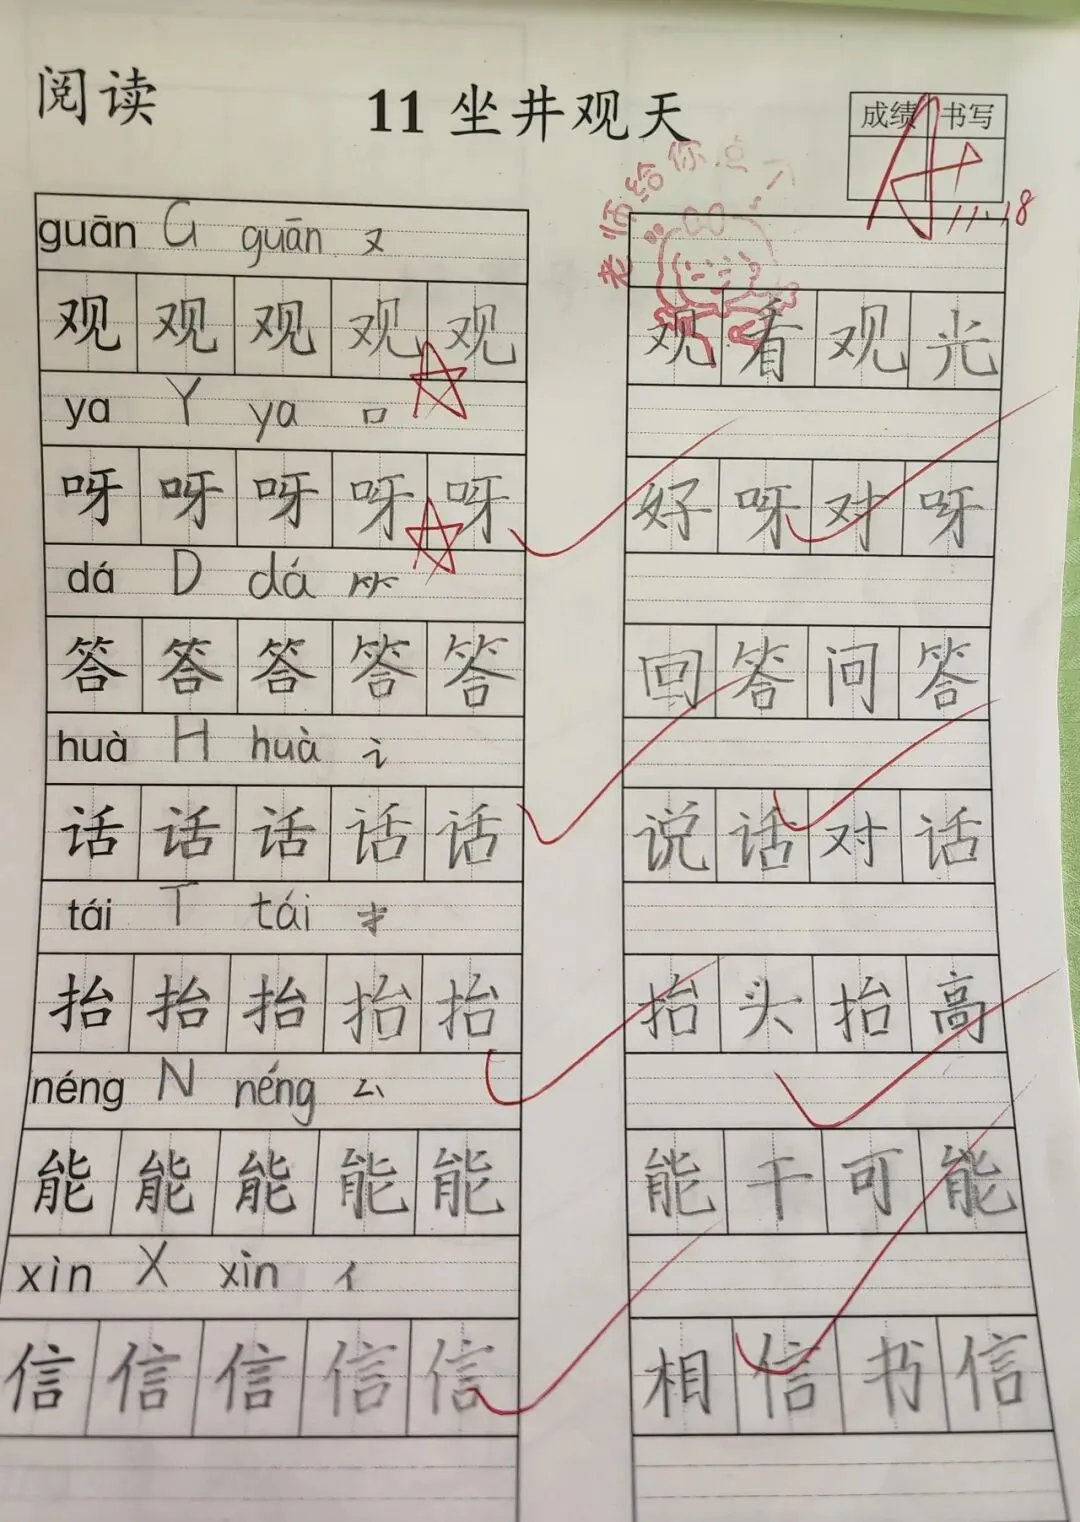 阅读
11 坐井观天
成绩 书写
A+
11.18
老师给你点
guān G guān 又
观 观 观 观 观
观看观光
ya Y ya 口
呀 呀 呀 呀 呀
好呀对呀
dá D dá ⺮
答 答 答 答 答
回答问答
huà H huà 讠
话 话 话 话 话
说话对话
tái T tái 扌
抬 抬 抬 抬 抬
抬头抬高
néng N néng 厶
能 能 能 能 能
能干可能
xìn X xìn 亻
信 信 信 信 信
相信书信